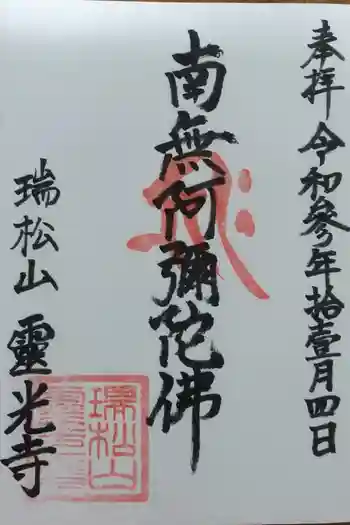 奉拝 令和參年拾壹月四日
南無阿彌陀佛
瑞松山 靈光寺
瑞松山
靈光寺